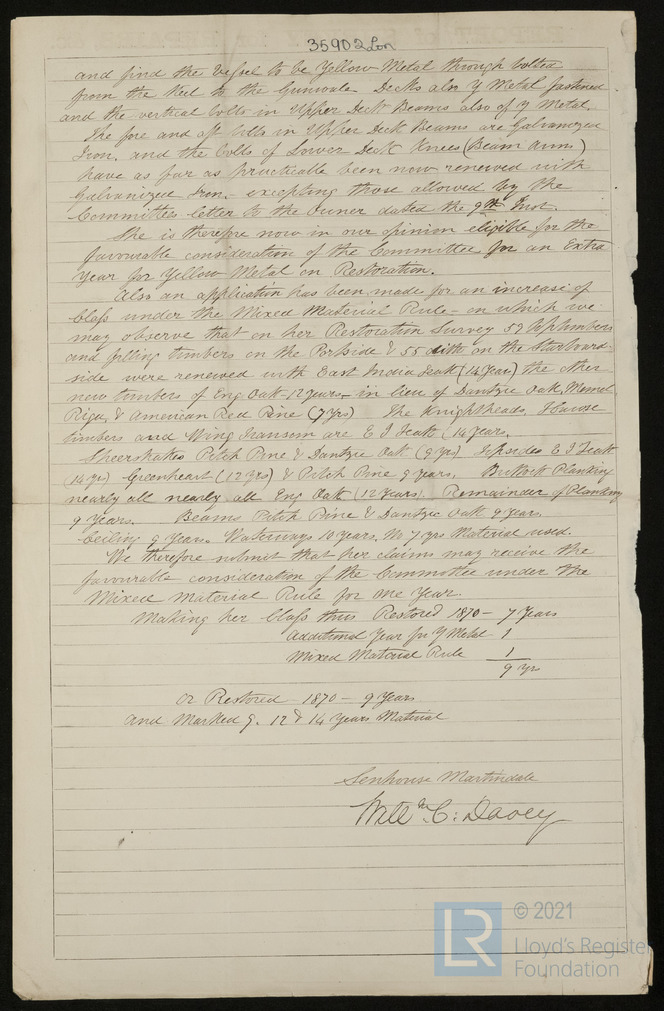 35902 Lon
and find the Vessel to be Yellow Metal through bolted
from the Keel to the Gunwale Decks also Y Metal fastened
and the vertical bolts in Upper Deck Beams also of y Metal.
The fore and aft bolts in Upper Deck Beams are Galvanized
Iron. and the bolts of Lower Deck Knees (Beam Arms)
have as far as practicable been now renewed with
Galvanized Iron. - excepting those allowed by the
Committees letter to the Owner dated the 9th Inst.
She is therefore now in our opinion eligible for the
favourable consideration of the Committee for an Extra
Year for Yellow Metal on Restoration.
Also an application has been made for an increase of
Class under the Mixed Material Rule - on which we
may observe that on her Restoration Survey 59 
and filling timbers on the Portside & 55 ditto on the Starboard
side were renewed with East India Teak (14 Years) the other
new timbers of Eng Oak - 12 years - in lieu of Dantzic Oak, Memel
Riga, & American Red Pine (7 yrs) The Knightheads, Hawse
timbers and Wing Transom are E I Teak (14 years.
Sheerstrakes Pitch Pine & Dantzic Oak (9 yrs) Topsides E I Teak
(14 yrs) Greenheart (12 yrs) & Pitch Pine 9 years. Buttock Planking
nearly all nearly all Eng Oak (12 Years). Remainder of Planking
9 Years. Beams Pitch Pine & Dantzic Oak 9 years.
Ceiling 9 Years. Waterways 10 years, No 7 yrs Material used.
We therefore submit that her claims may receive the
favourable consideration of the Committee under the
Mixed Material Rule for one Year.
Making her Class thus Restored 1870 - 7 Years
Additional Year for Y Metal 1
Mixed Material Rule 1
9 yrs
or Restored 1870 - 9 Years
and Marked 9. 12 & 14 years Material
Senhouse Martindale
Willm C: Davey
LR
© 2021
Lloyd's Register
Foundation